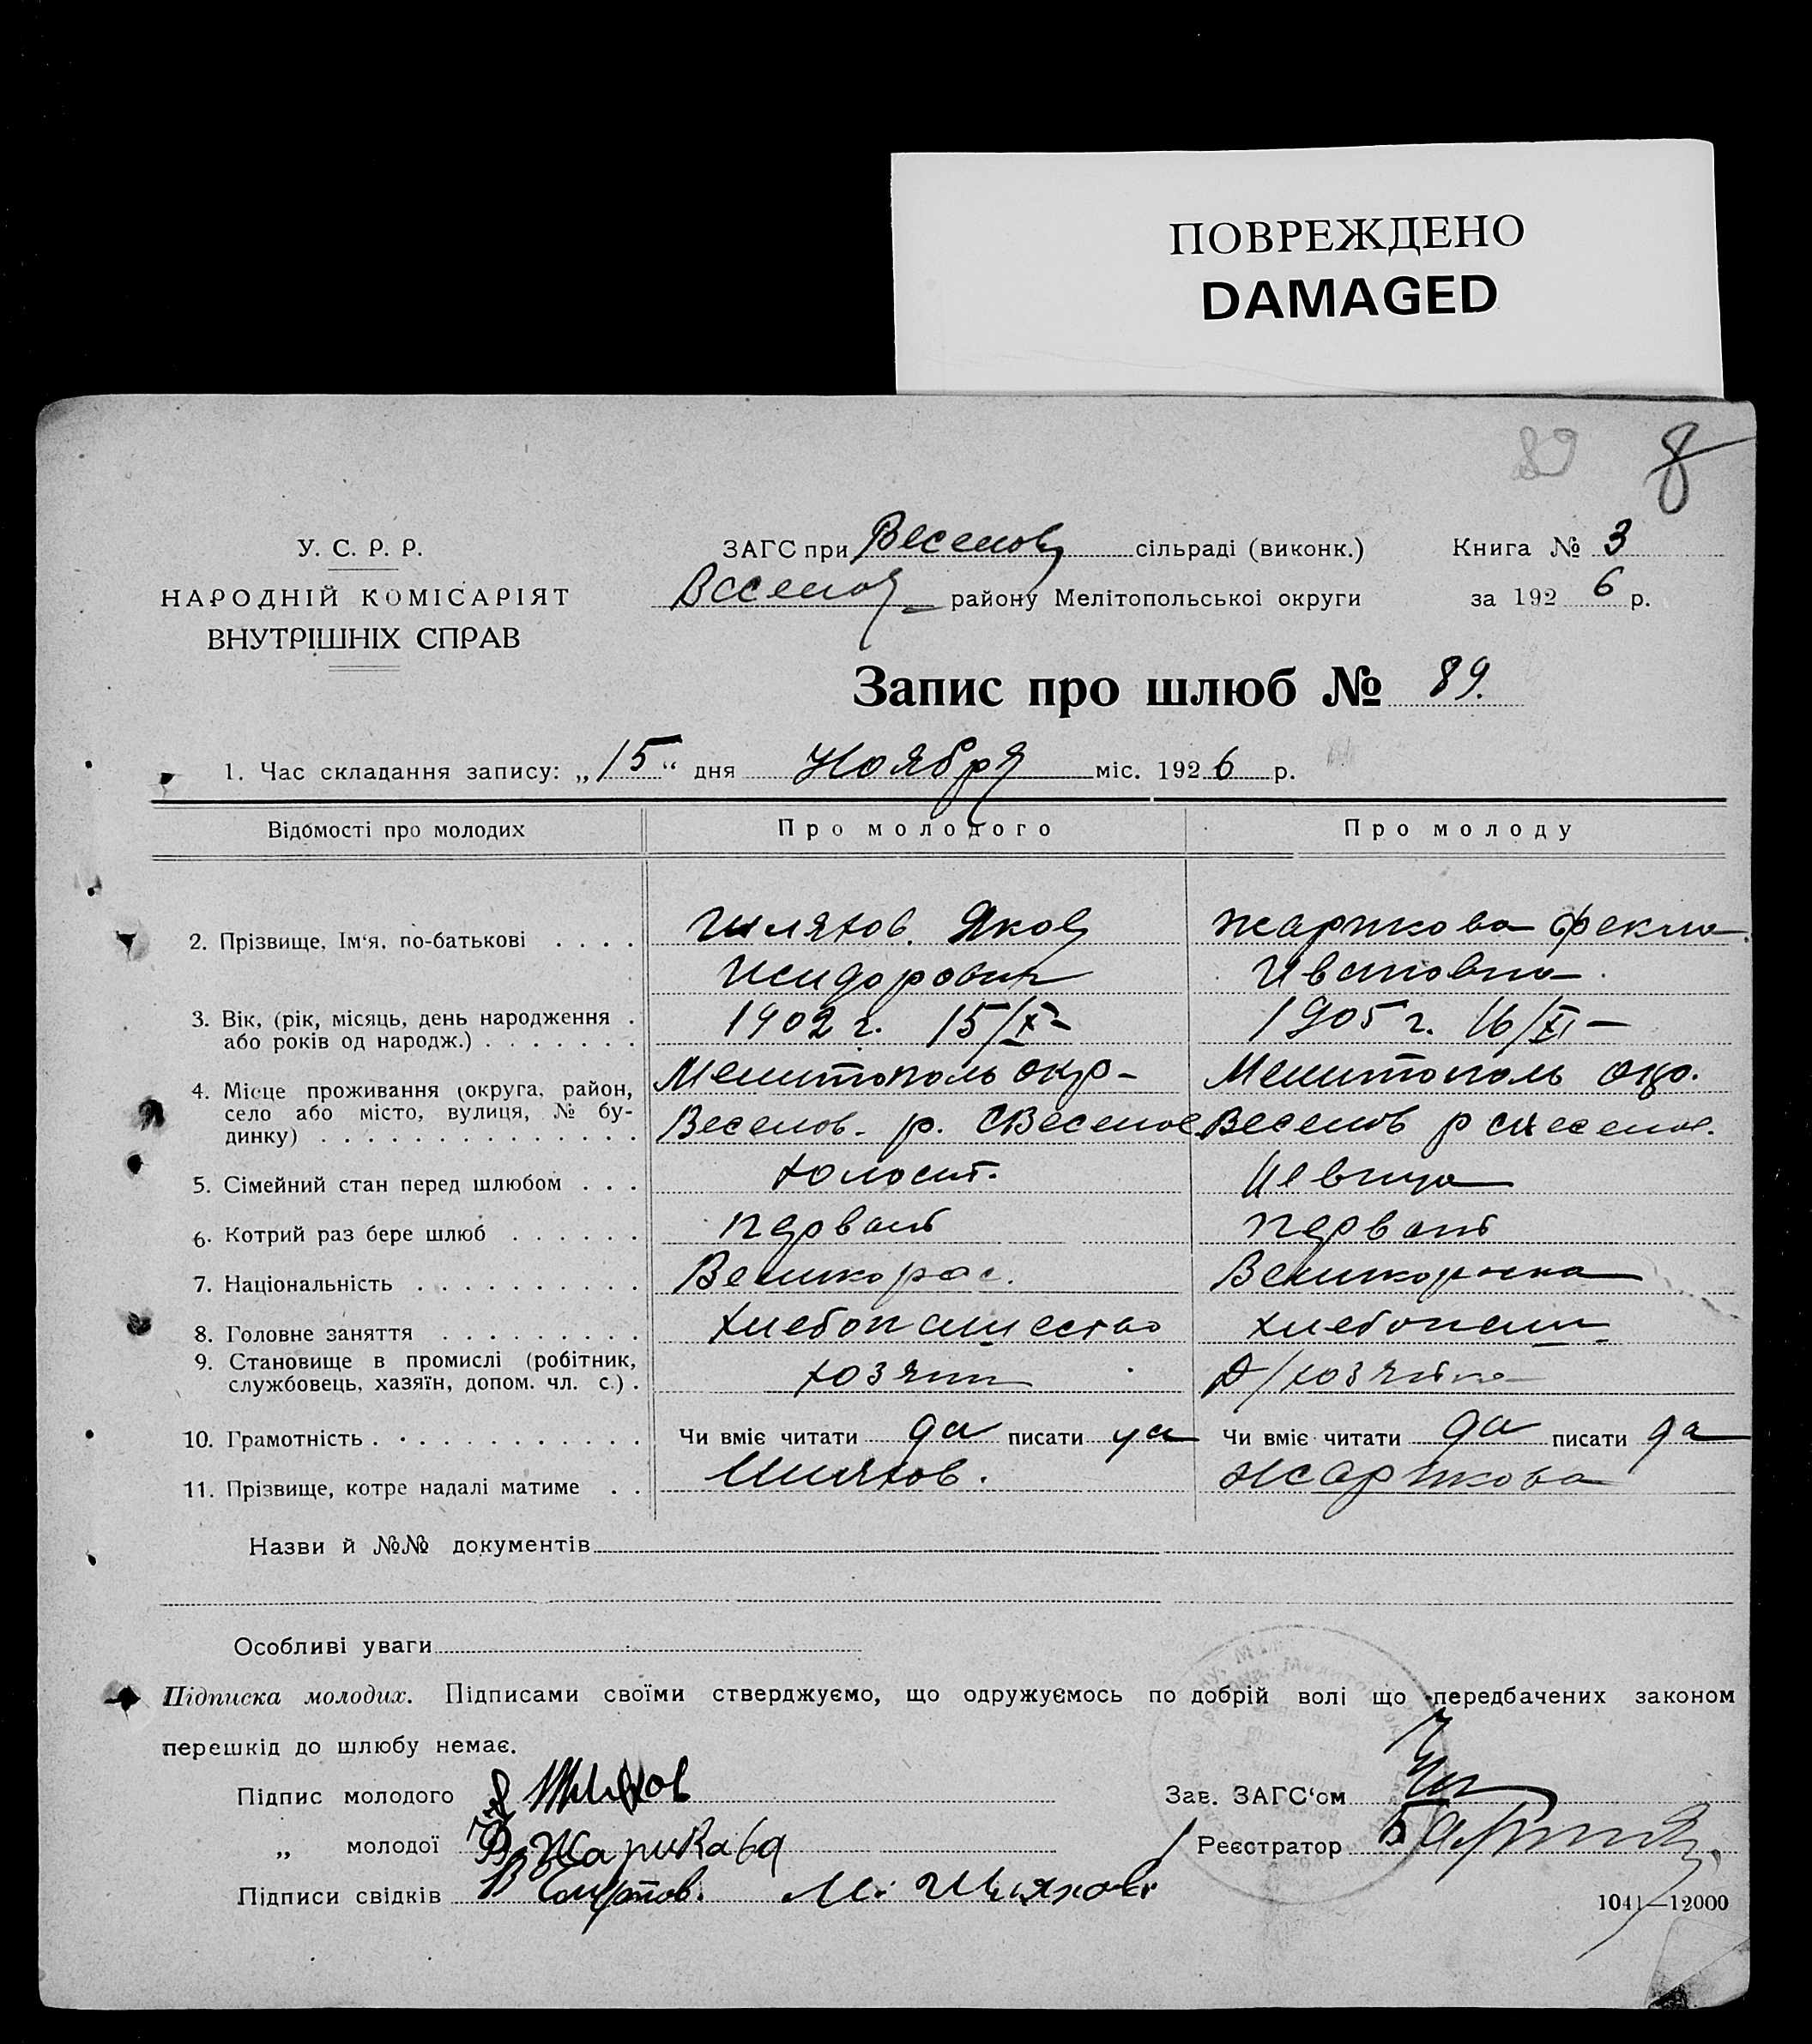 ПОВРЕЖДЕНО
DAMAGED
89 8
У. С. Р. Р.
НАРОДНІЙ КОМІСАРІЯТ
ВНУТРІШНІХ СПРАВ
ЗАГС при Веселов сільраді (виконк.) Книга № 3
Веселов району Мелітопольської округи за 1926 р.
Запис про шлюб № 89.
1. Час складання запису: „15“ дня Ноября міс. 1926 р.
Відомості про молодих Про молодого Про молоду
2. Прізвище, Ім'я, по-батькові . . . . Шляхов. Яков Жаркова Фекла
Исидорович Ивановна
3. Вік, (рік, місяць, день народження . 1902 г. 15/X- 1905 г. 16/XI-
або років од народж.) . . . . . . .
4. Місце проживання (округа, район, Мелитополь окр- Мелитополь окр.
село або місто, вулиця, № бу- Веселов. р. С Веселое Веселов р с Веселое.
динку) . . . . . . . . . . . . . .
5. Сімейний стан перед шлюбом . . . холост. Девица
6. Котрий раз бере шлюб . . . . . . первый первый
7. Національність . . . . . . . . . . Великорос. Великороска
8. Головне заняття . . . . . . . . . хлебопашество хлебопаш
9. Становище в промислі (робітник, хозяин Д/хозяйка
службовець, хазяїн, допом. чл. с.) .
10. Грамотність . . . . . . . . . . . . Чи вміє читати да писати да Чи вміє читати да писати да
11. Прізвище, котре надалі матиме . . Шляхов. Жаркова
Назви й №№ документів
Особливі уваги
Підписка молодих. Підписами своїми стверджуємо, що одружуємось по добрій волі що передбачених законом
перешкід до шлюбу немає.
Підпис молодого Я Шляхов Зав. ЗАГС'ом
„ молодої Жаркава Реєстратор
Підписи свідків М. Шляхов
1041—12000